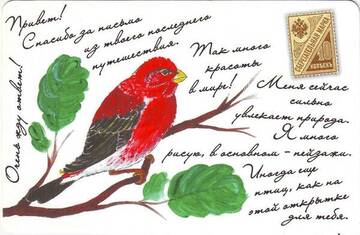 Привет!
Спасибо за письмо
из твоего последнего
путешествия.
Так много
красоты
в мире!
Меня сейчас
сильно
увлекает природа.
Я много
рисую, в основном - пейзажи.
Иногда еще
птиц, как на
этой открытке
для тебя.
Очень жду ответ!